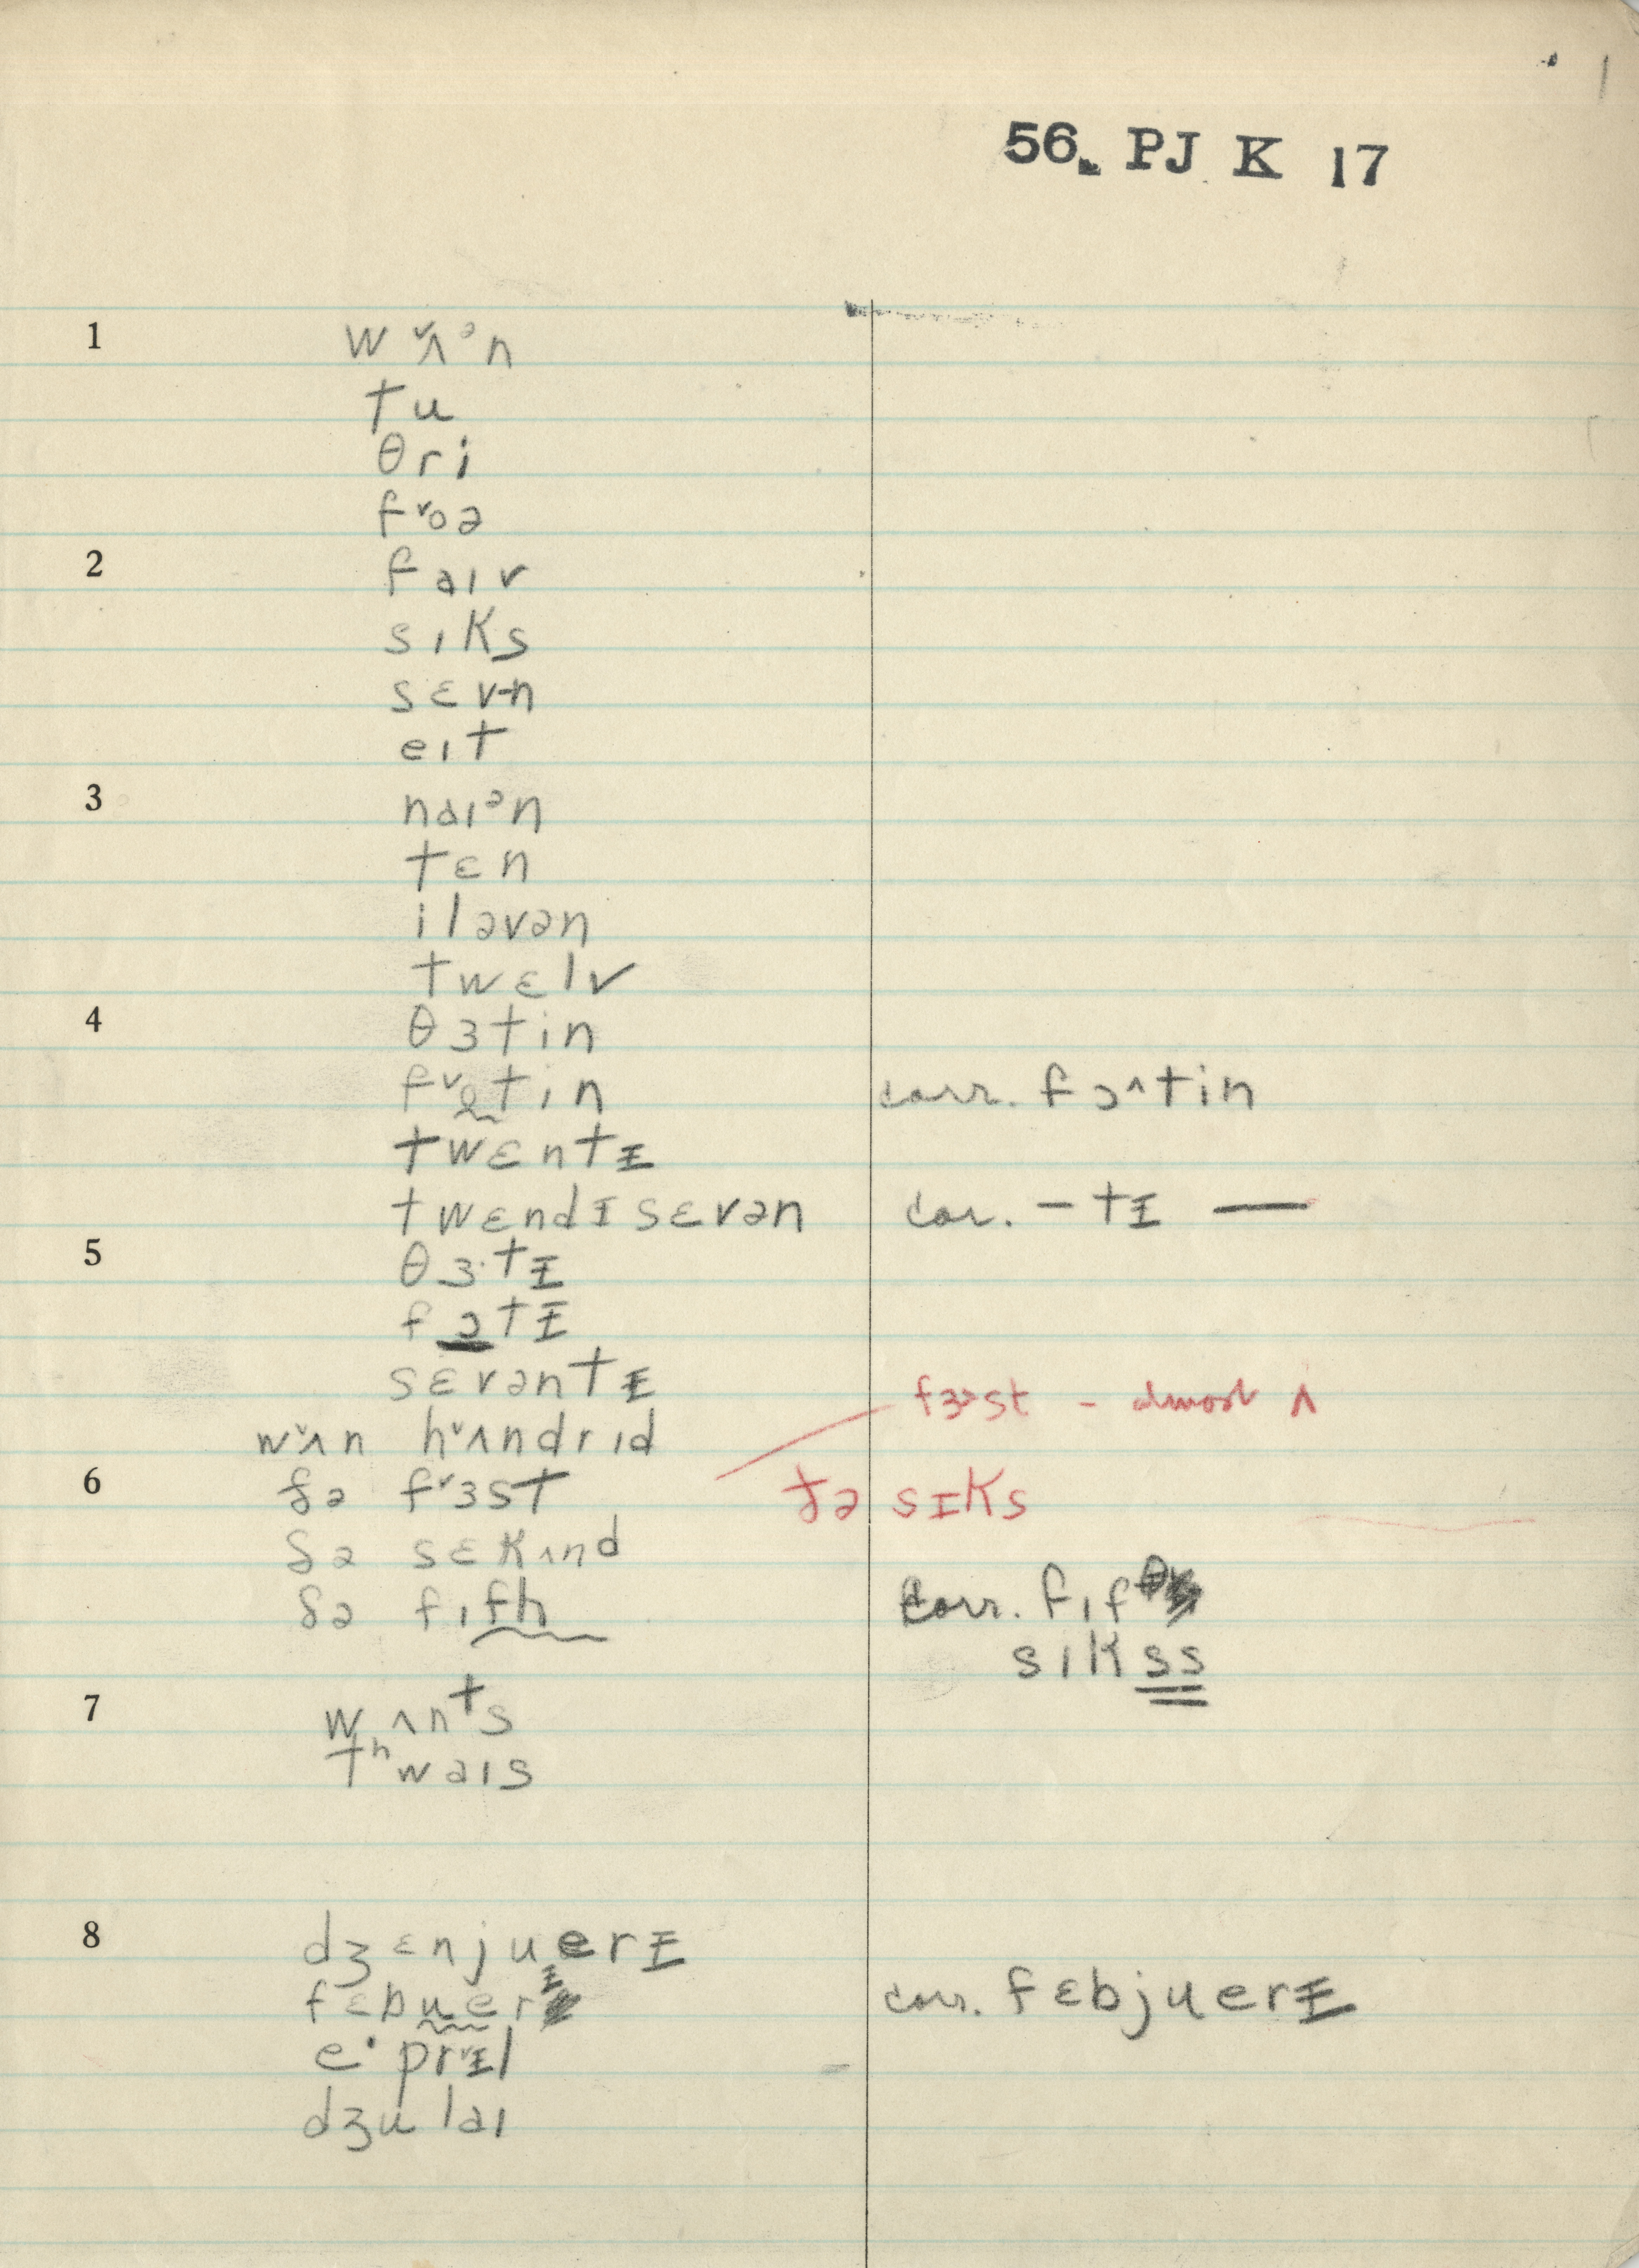 1
56. PJ K 17
1 w ˅ʌᵊn
tu
θri
f˅oə
2 faɪv
sɪks
sɛv-n
eɪt
3 naɪᵊn
tɛn
iləvən
twɛlv
4 θɜtin
f˅otin corr. fɔ^tin
twɛntɪ
twɛndɪsɛvən cor. – tɪ —
5 θɜ·tɪ
fɔtɪ
sɛvəntɪ
fɜᵊst - almost ʌ
w˅ʌn h˅ʌndrɪd
6 ðə f˅ɜst ðə sɪks
ðə sɛkʌnd
ðə fɪfh corr. fɪfθ
sɪkss
7 wʌnᵗs
tʰwaɪs
8 dʒɛnjuerɪ
fɛbuerɪ corr. fɛbjuerɪ
e·pr˅ɪl
dʒulaɪ